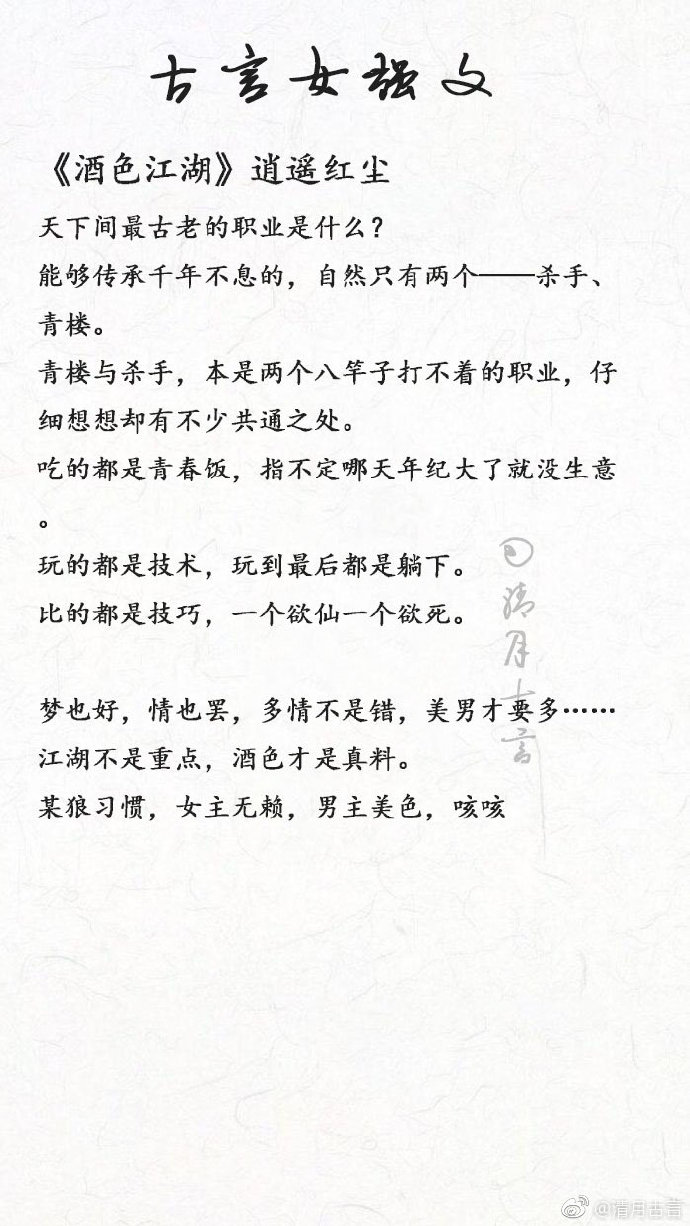 古言女强文
《酒色江湖》逍遥红尘
天下间最古老的职业是什么？
能够传承千年不息的，自然只有两个——杀手、
青楼。
青楼与杀手，本是两个八竿子打不着的职业，仔
细想想却有不少共通之处。
吃的都是青春饭，指不定哪天年纪大了就没生意
。
玩的都是技术，玩到最后都是躺下。
比的都是技巧，一个欲仙一个欲死。
梦也好，情也罢，多情不是错，美男才要多……
江湖不是重点，酒色才是真料。
某狼习惯，女主无赖，男主美色，咳咳